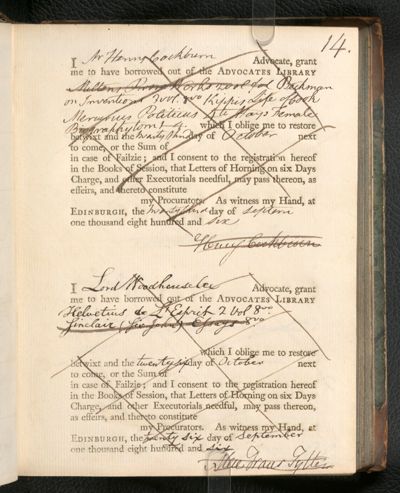 14.
I Mr Henry Cockburn Advocate, grant
me to have borrowed out of the ADVOCATES LIBRARY
Miltons Prose Works vol
on Invention 2 vol. 8vo Kippis Life of Cook
Mercurius Politicus Hays Female
Biography which I oblige me to restore
betwixt and the day of October next
to come, or the Sum of
in case of Failzie; and I consent to the registration hereof
in the Books of Session, that Letters of Horning on six Days
Charge, and other Executorials needful, may pass thereon, as
effeirs, and thereto constitute
my Procurators. As witness my Hand, at
EDINBURGH, the day of Septem
one thousand eight hundred and six
Henry Cockburn
I Lord Woodhouselee Advocate, grant
me to have borrowed out of the ADVOCATES LIBRARY
Helvetius de L'Esprit 2 Vol 8vo
Sinclair (Sir John) Essays 8vo
which I oblige me to restore
betwixt and the twenty six day of October next
to come, or the Sum of
in case of Failzie; and I consent to the registration hereof
in the Books of Session, that Letters of Horning on six Days
Charge, and other Executorials needful, may pass thereon,
as effeirs, and thereto constitute
my Procurators. As witness my Hand, at
EDINBURGH, the twenty six day of September
one thousand eight hundred and six
Fraser Tytler